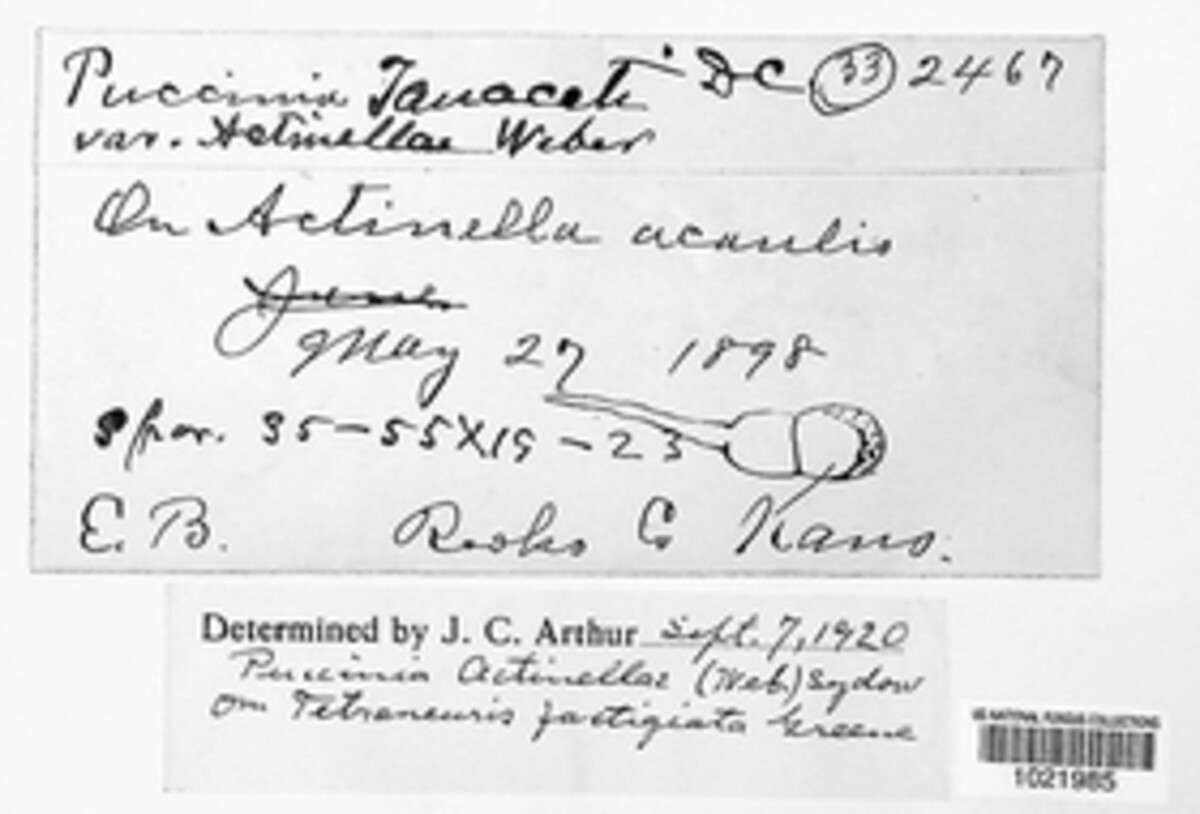 Puccinia Tanaceti DC (33) 2467
var. Actinellae Weber
On Actinella acaulis
June
May 27 1898
spor. 35-55X19-23
E. B. Rooks Co Kans.
Determined by J. C. Arthur Sept. 7, 1920
Puccinia Actinellae (Web.) Sydow
on Tetraneuris fastigiata Greene
US NATIONAL FUNGUS COLLECTIONS
1021985